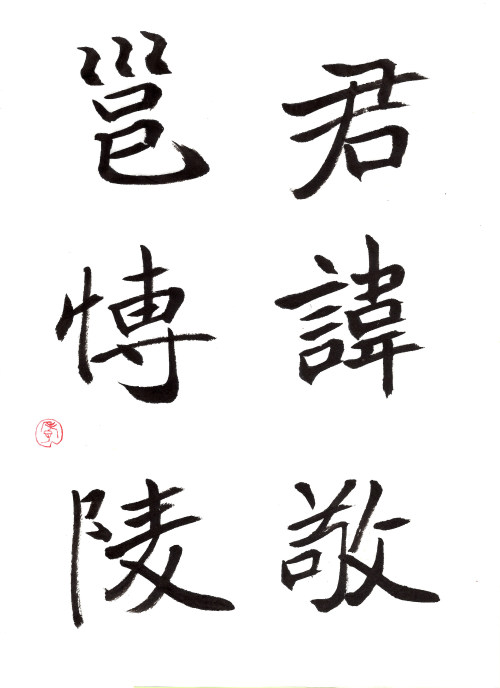 君諱敬
邕愽陵